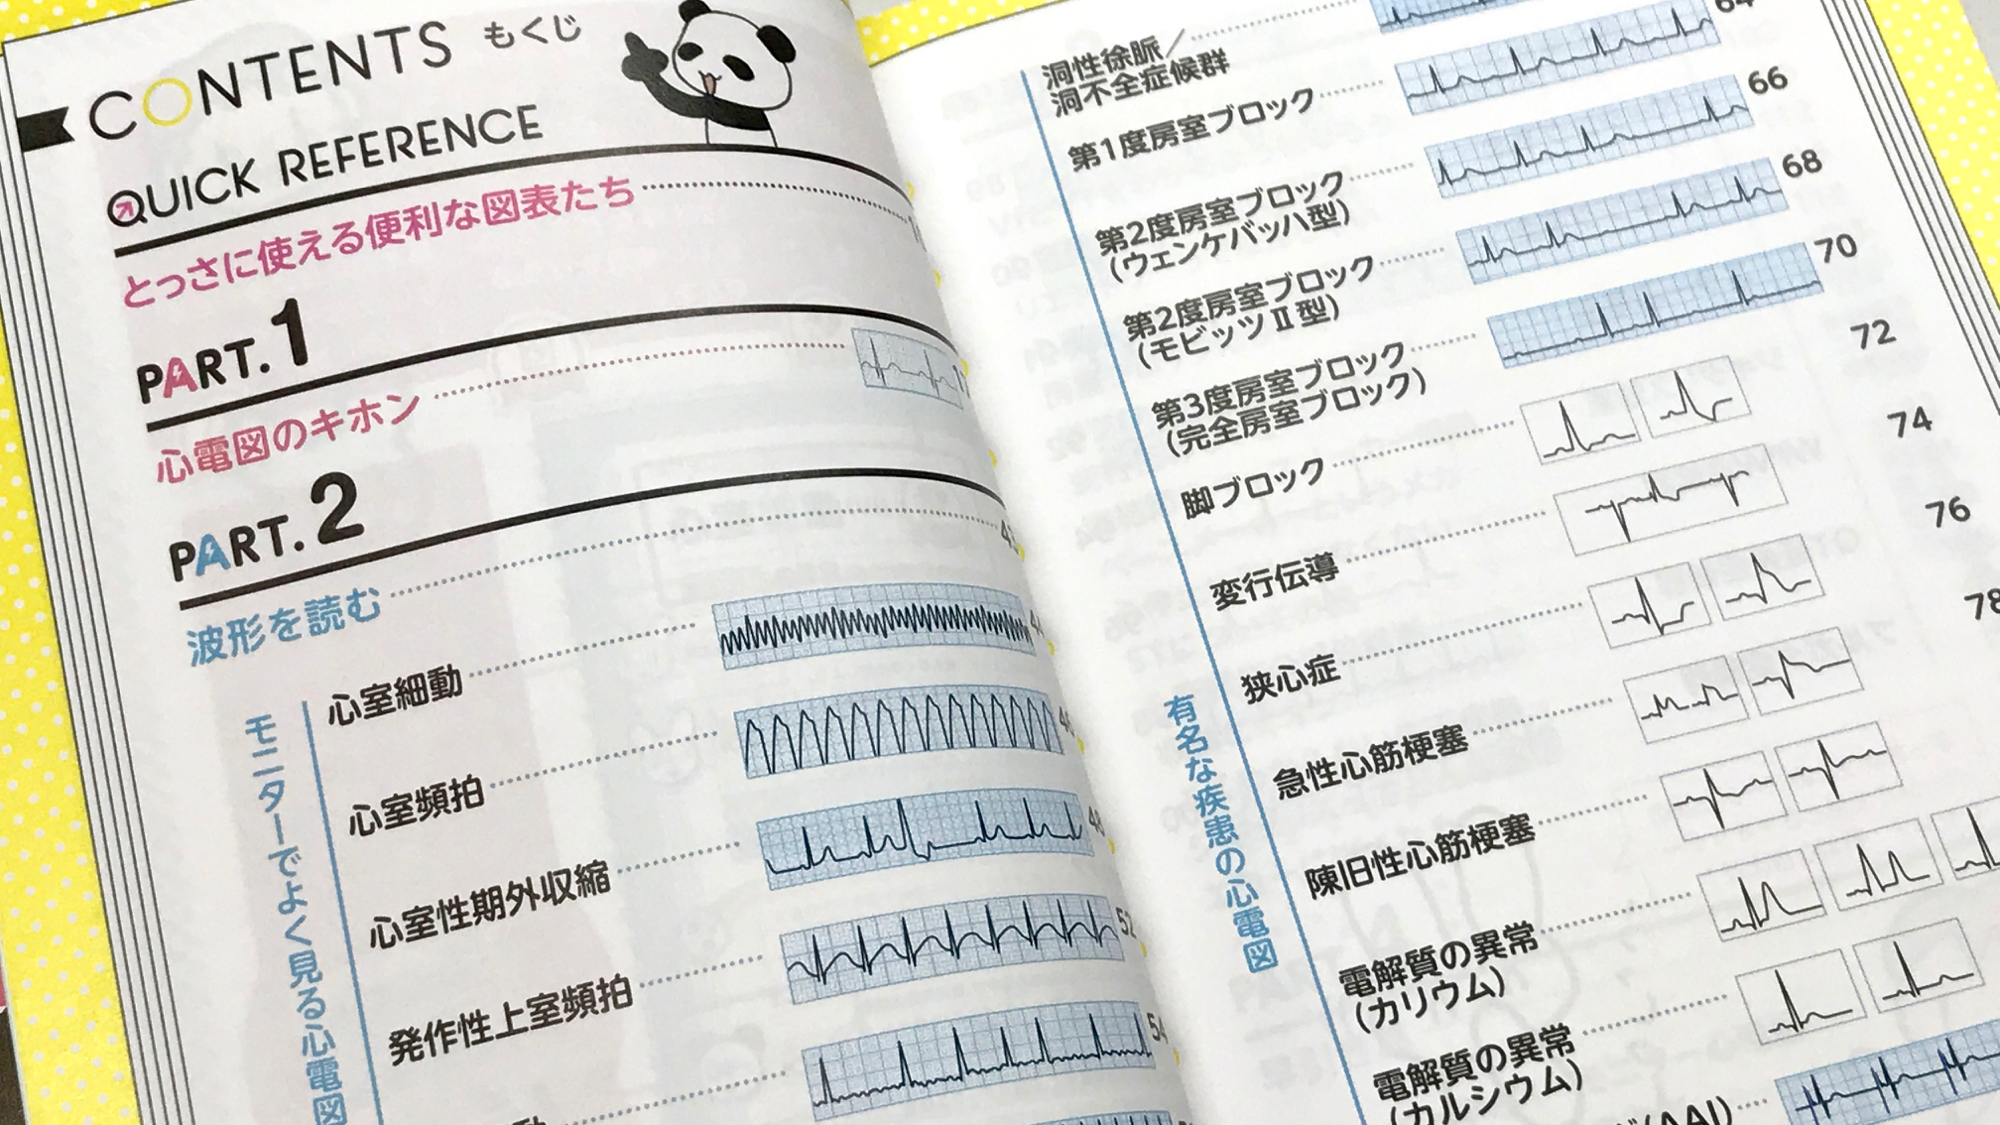 CONTENTS もくじ
QUICK REFERENCE
とっさに使える便利な図表たち
PART.1
心電図のキホン
PART.2
波形を読む
モニターでよく見る心電図
心室細動
心室頻拍
心室性期外収縮
発作性上室頻拍 52
54
洞性徐脈／
洞不全症候群 64
第1度房室ブロック 66
第2度房室ブロック
（ウェンケバッハ型） 68
第2度房室ブロック
（モビッツⅡ型） 70
第3度房室ブロック
（完全房室ブロック） 72
脚ブロック 74
変行伝導 76
有名な疾患の心電図
狭心症 78
急性心筋梗塞
陳旧性心筋梗塞
電解質の異常
（カリウム）
電解質の異常
（カルシウム）
(AAI)